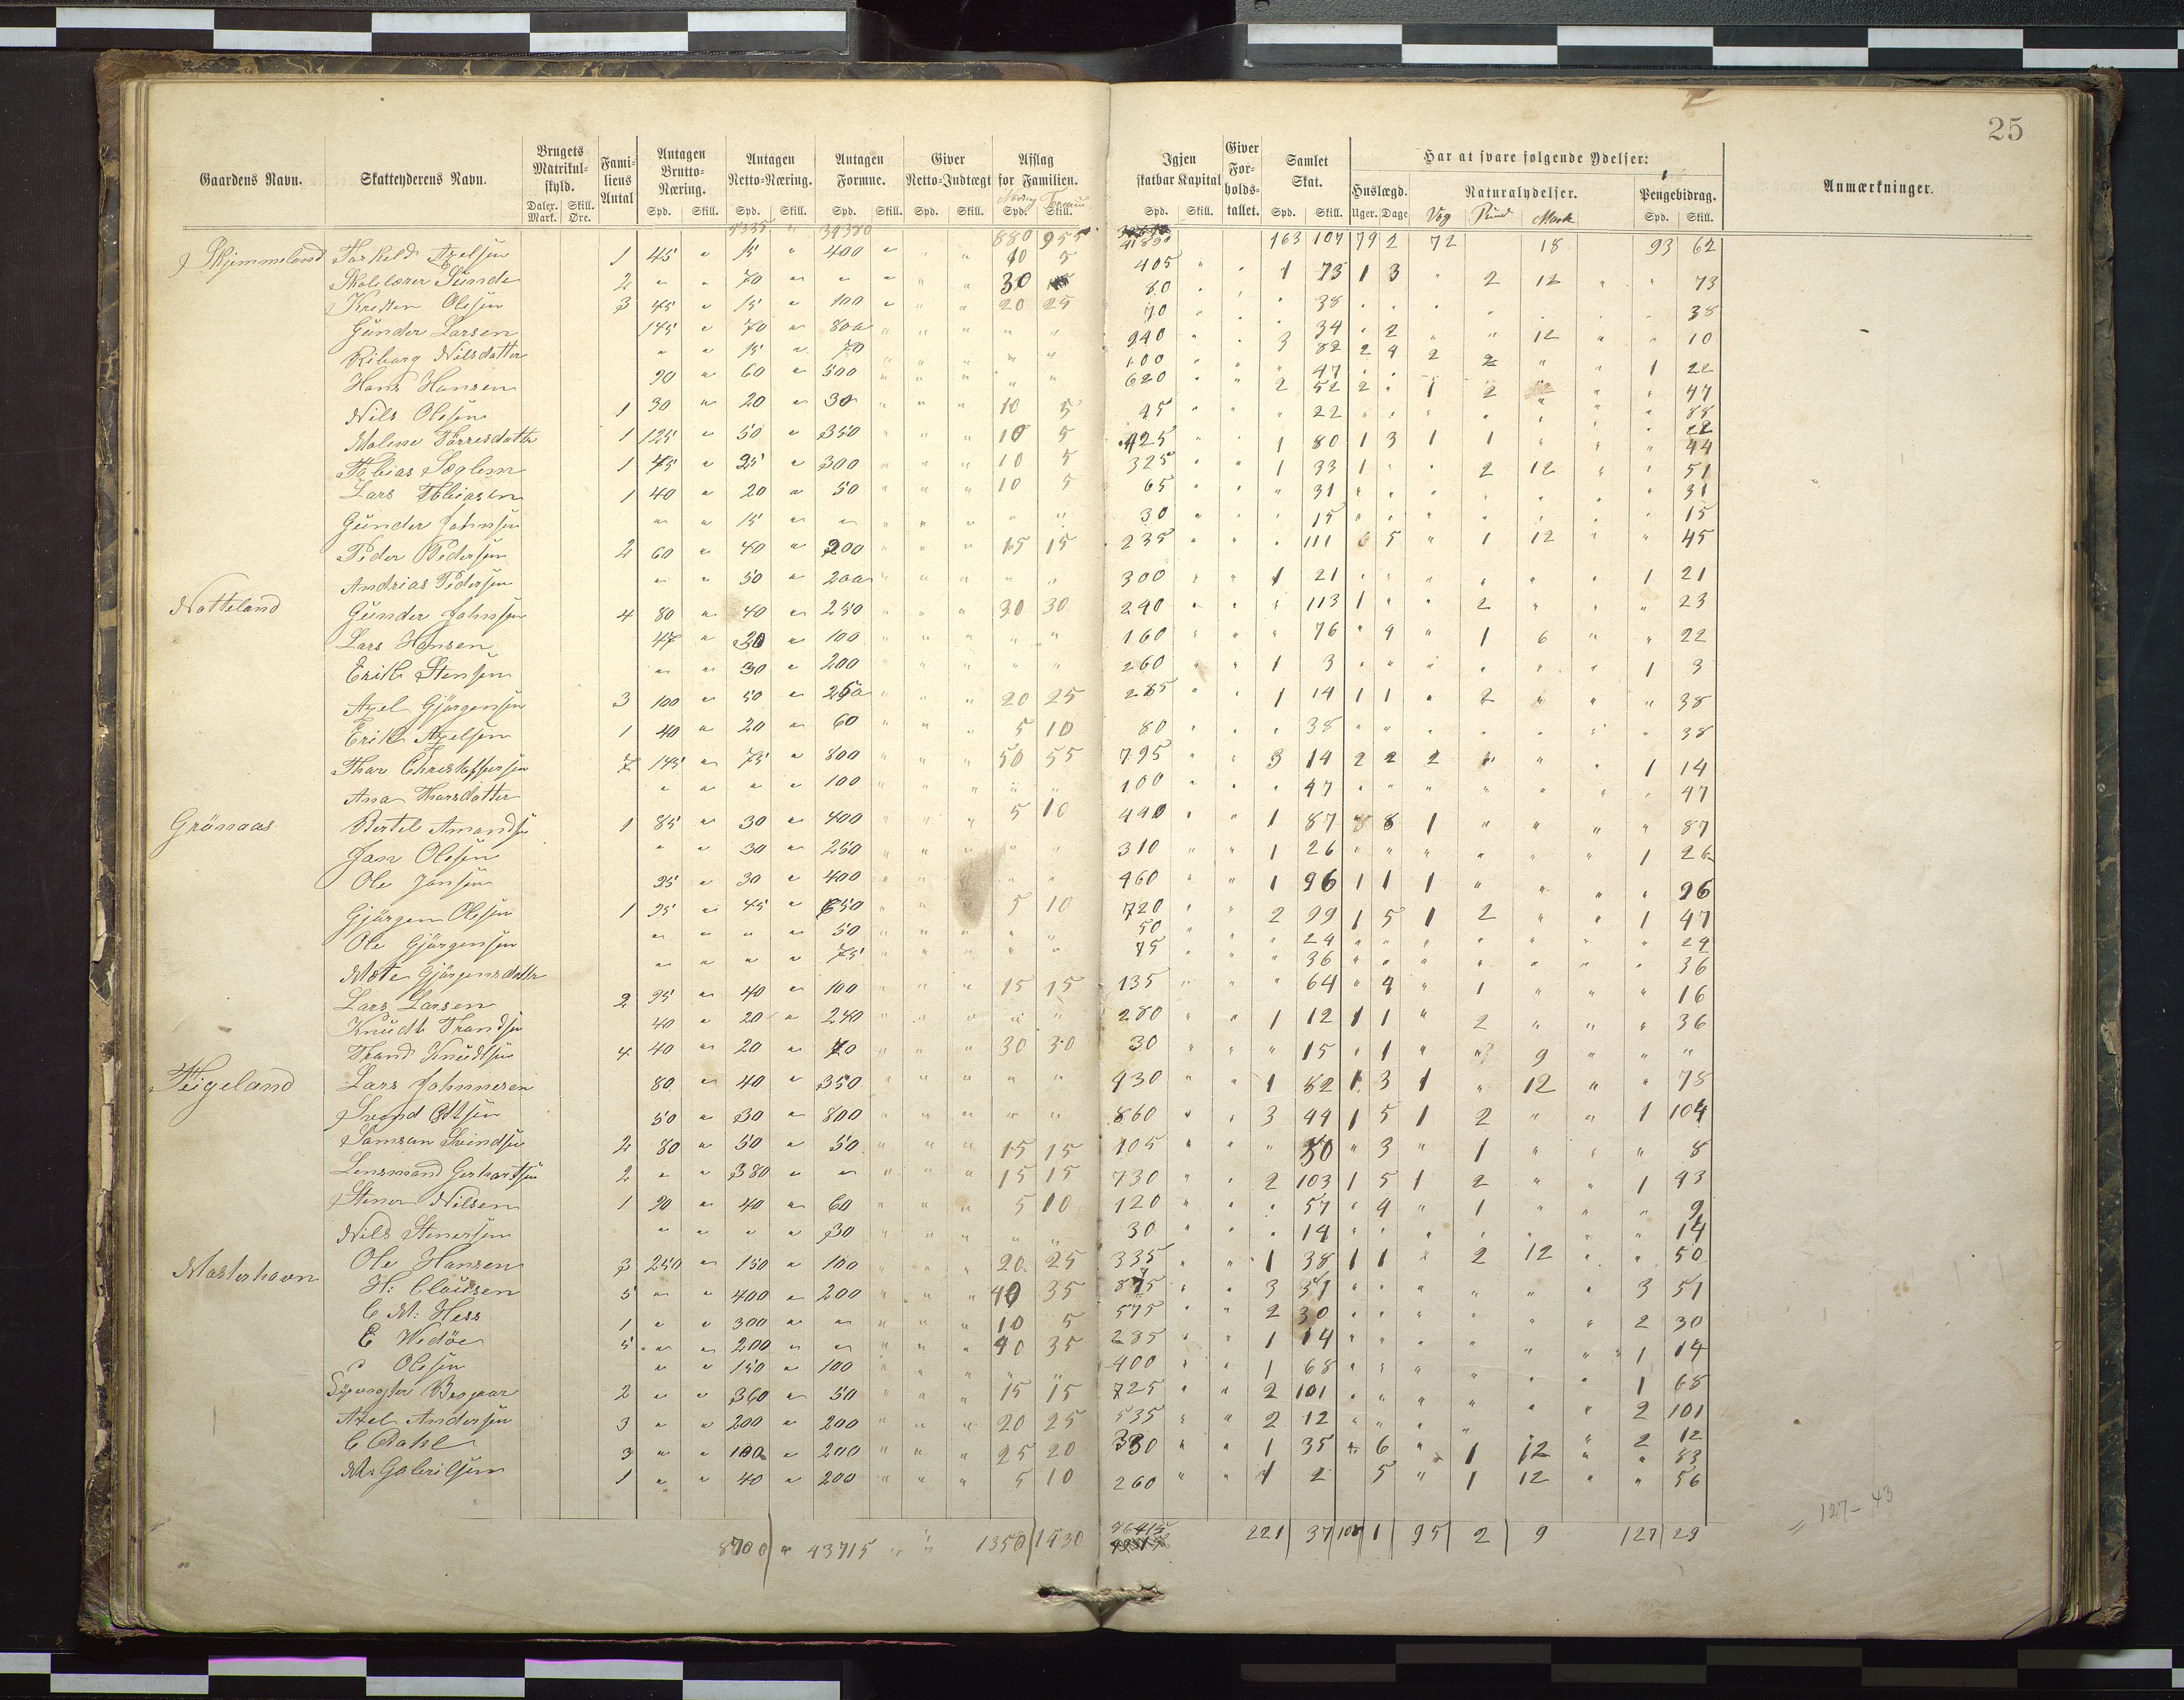 25
Gaardens Navn. Skatteyderens Navn. Brugets Matrikul-skyld. Fami-liens Antal Antagen Brutto-Næring. Antagen Netto-Næring. Antagen Formue. Giver Netto-Indtægt Afslag for Familien. Igjen skatbar Kapital Giver For-holds-tallet. Samlet Skat. Har at svare følgende Ydelser: Anmærkninger.
Huslægd. Naturalydelser. Pengebidrag.
Daler. Mark. Skill. Øre. Spd. Skill. Spd. Skill. Spd. Skill. Spd. Skill. Spd. Skill. Spd. Skill. Spd. Skill. Uger. Dage Vog Pund Mark Spd. Skill.
5335 " 34380 880 955 41890 163 107 79 2 72 18 93 62
Skjemmeland Torkeld Axelsen 1 45 " 15 " 400 " " " 10 5 405 " " 1 73 1 3 " 2 12 " " 73
Skolelærer Sunde 2 " " 70 " " " " " 30 80 " " " 38 " " " " " " " 38
Kristen Olesen 3 45 " 15 " 100 " " " 20 25 70 " " " 34 " 2 " " 12 " " 10
Gunder Larsen 145 " 70 " 800 " " " " " 940 " " 3 82 2 4 2 2 " " 1 22
Kiborg Nilsdatter " " 15 " 70 " " " " " 100 " " " 47 " " " " " " " 47
Hans Hansen 90 " 60 " 500 " " " " " 620 " " 2 52 2 " 1 2 " " " 88
Nils Olesen 1 30 " 20 " 30 " " " 10 5 45 " " " 22 " " " " " " " 22
Malene Tørresdatter 1 125 " 50 " 350 " " " 10 5 425 " " 1 80 1 3 1 1 " " " 44
Tobias Seglem 1 45 " 25 " 300 " " " 10 5 325 " " 1 33 1 " " 2 12 " " 51
Lars Tobiasen 1 40 " 20 " 50 " " " 10 5 65 " " " 31 " " " " " " " 31
Gunder Johnsen " " 15 " " " " " " " 30 " " " 15 " " " " " " " 15
Peder Pedersen 2 60 " 40 " 200 " " " 15 15 235 " " " 111 " 5 " 1 12 " " 45
Andrias Pedersen " " 50 " 200 " " " " " 300 " " 1 21 " " " " " " 1 21
Notteland Gunder Johnsen 4 80 " 40 " 250 " " " 30 30 240 " " " 113 1 " " 2 " " " 23
Lars Hansen 47 " 30 " 100 " " " " " 160 " " " 76 " 4 " 1 6 " " 22
Erik Stensen " " 30 " 200 " " " " " 260 " " 1 3 " " " " " " 1 3
Axel Gjørgensen 3 100 " 50 " 250 " " " 20 25 285 " " 1 14 1 1 " 2 " " " 38
Erik Axelsen 1 40 " 20 " 60 " " " 5 10 80 " " " 38 " " " " " " " 38
Thor Christoffersen 7 145 " 75 " 800 " " " 50 55 795 " " 3 14 2 2 2 " " " 1 14
Ana Thorsdatter " " " " 100 " " " " " 100 " " " 47 " " " " " " " 47
Grønaas Bertel Amandsen 1 85 " 30 " 400 " " " 5 10 440 " " 1 87 " 8 1 " " " " 87
Jan Olesen " " 30 " 250 " " " " " 310 " " 1 26 " " " " " " 1 26
Ole Jansen 95 " 30 " 400 " " " " " 460 " " 1 96 1 1 1 " " " " 96
Gjørgen Olesen 1 95 " 45 " 650 " " " 5 10 720 " " 2 99 1 5 1 2 " " 1 47
Ole Gjørgensen " " " " 50 " " " " " 50 " " " 24 " " " " " " " 24
Mete Gjørgensdatter " " " " 75 " " " " " 75 " " " 36 " " " " " " " 36
Lars Larsen 2 95 " 40 " 100 " " " 15 15 135 " " " 64 " 4 " 1 " " " 16
Knudt Trondsen 40 " 20 " 240 " " " " " 280 " " 1 12 1 1 " 2 " " " 36
Trond Knudtsen 4 40 " 20 " 70 " " " 30 30 30 " " " 15 " 1 " " 9 " " "
Teigeland Lars Johnnesen 80 " 40 " 350 " " " " " 430 " " 1 82 1 3 1 " 12 " " 78
Svend Ottsen 50 " 30 " 800 " " " " " 860 " " 3 94 1 5 1 2 " " 1 104
Samson Svindsen 2 80 " 50 " 50 " " " 15 15 105 " " " 50 " 3 " 1 " " " 8
Lensmand Gerhartsen 2 " " 380 " " " " " 15 15 730 " " 2 103 1 5 1 2 " " 1 93
Stener Nilsen 1 90 " 40 " 60 " " " 5 10 120 " " " 57 " 4 " 1 " " " 9
Nils Stenersen " " " " 30 " " " " " 30 " " " 14 " " " " " " " 14
Mosterhavn Ole Hansen 3 250 " 150 " 100 " " " 20 25 335 " " 1 38 1 1 " 2 12 " " 50
H: Clausen 5 " " 400 " 200 " " " 40 35 875 " " 3 51 " " " " " " 3 51
C M: Hess 1 " " 300 " " " " " 10 5 575 " " 2 30 " " " " " " 2 30
E Wedøe 5 " " 200 " " " " " 40 35 285 " " 1 14 " " " " " " 1 14
Olesen " " 150 " 100 " " " " " 400 " " 1 68 " " " " " " 1 68
2 " " 360 " 50 " " " 15 15 725 " " 2 101 " " " " " " 2 101
Axel Andersen 3 " " 200 " 200 " " " 20 25 535 " " 2 12 " " " " " " 2 12
C Dahl 3 " " 100 " 200 " " " 25 20 330 " " 1 35 " 6 " 1 12 " " 83
M: Gabrielsen 1 " " 40 " 200 " " " 5 10 260 " " 1 2 5 " 1 12 " " 56
127-43
8700 " 43715 " " 1350 1430 221 37 1 95 2 9 127 29